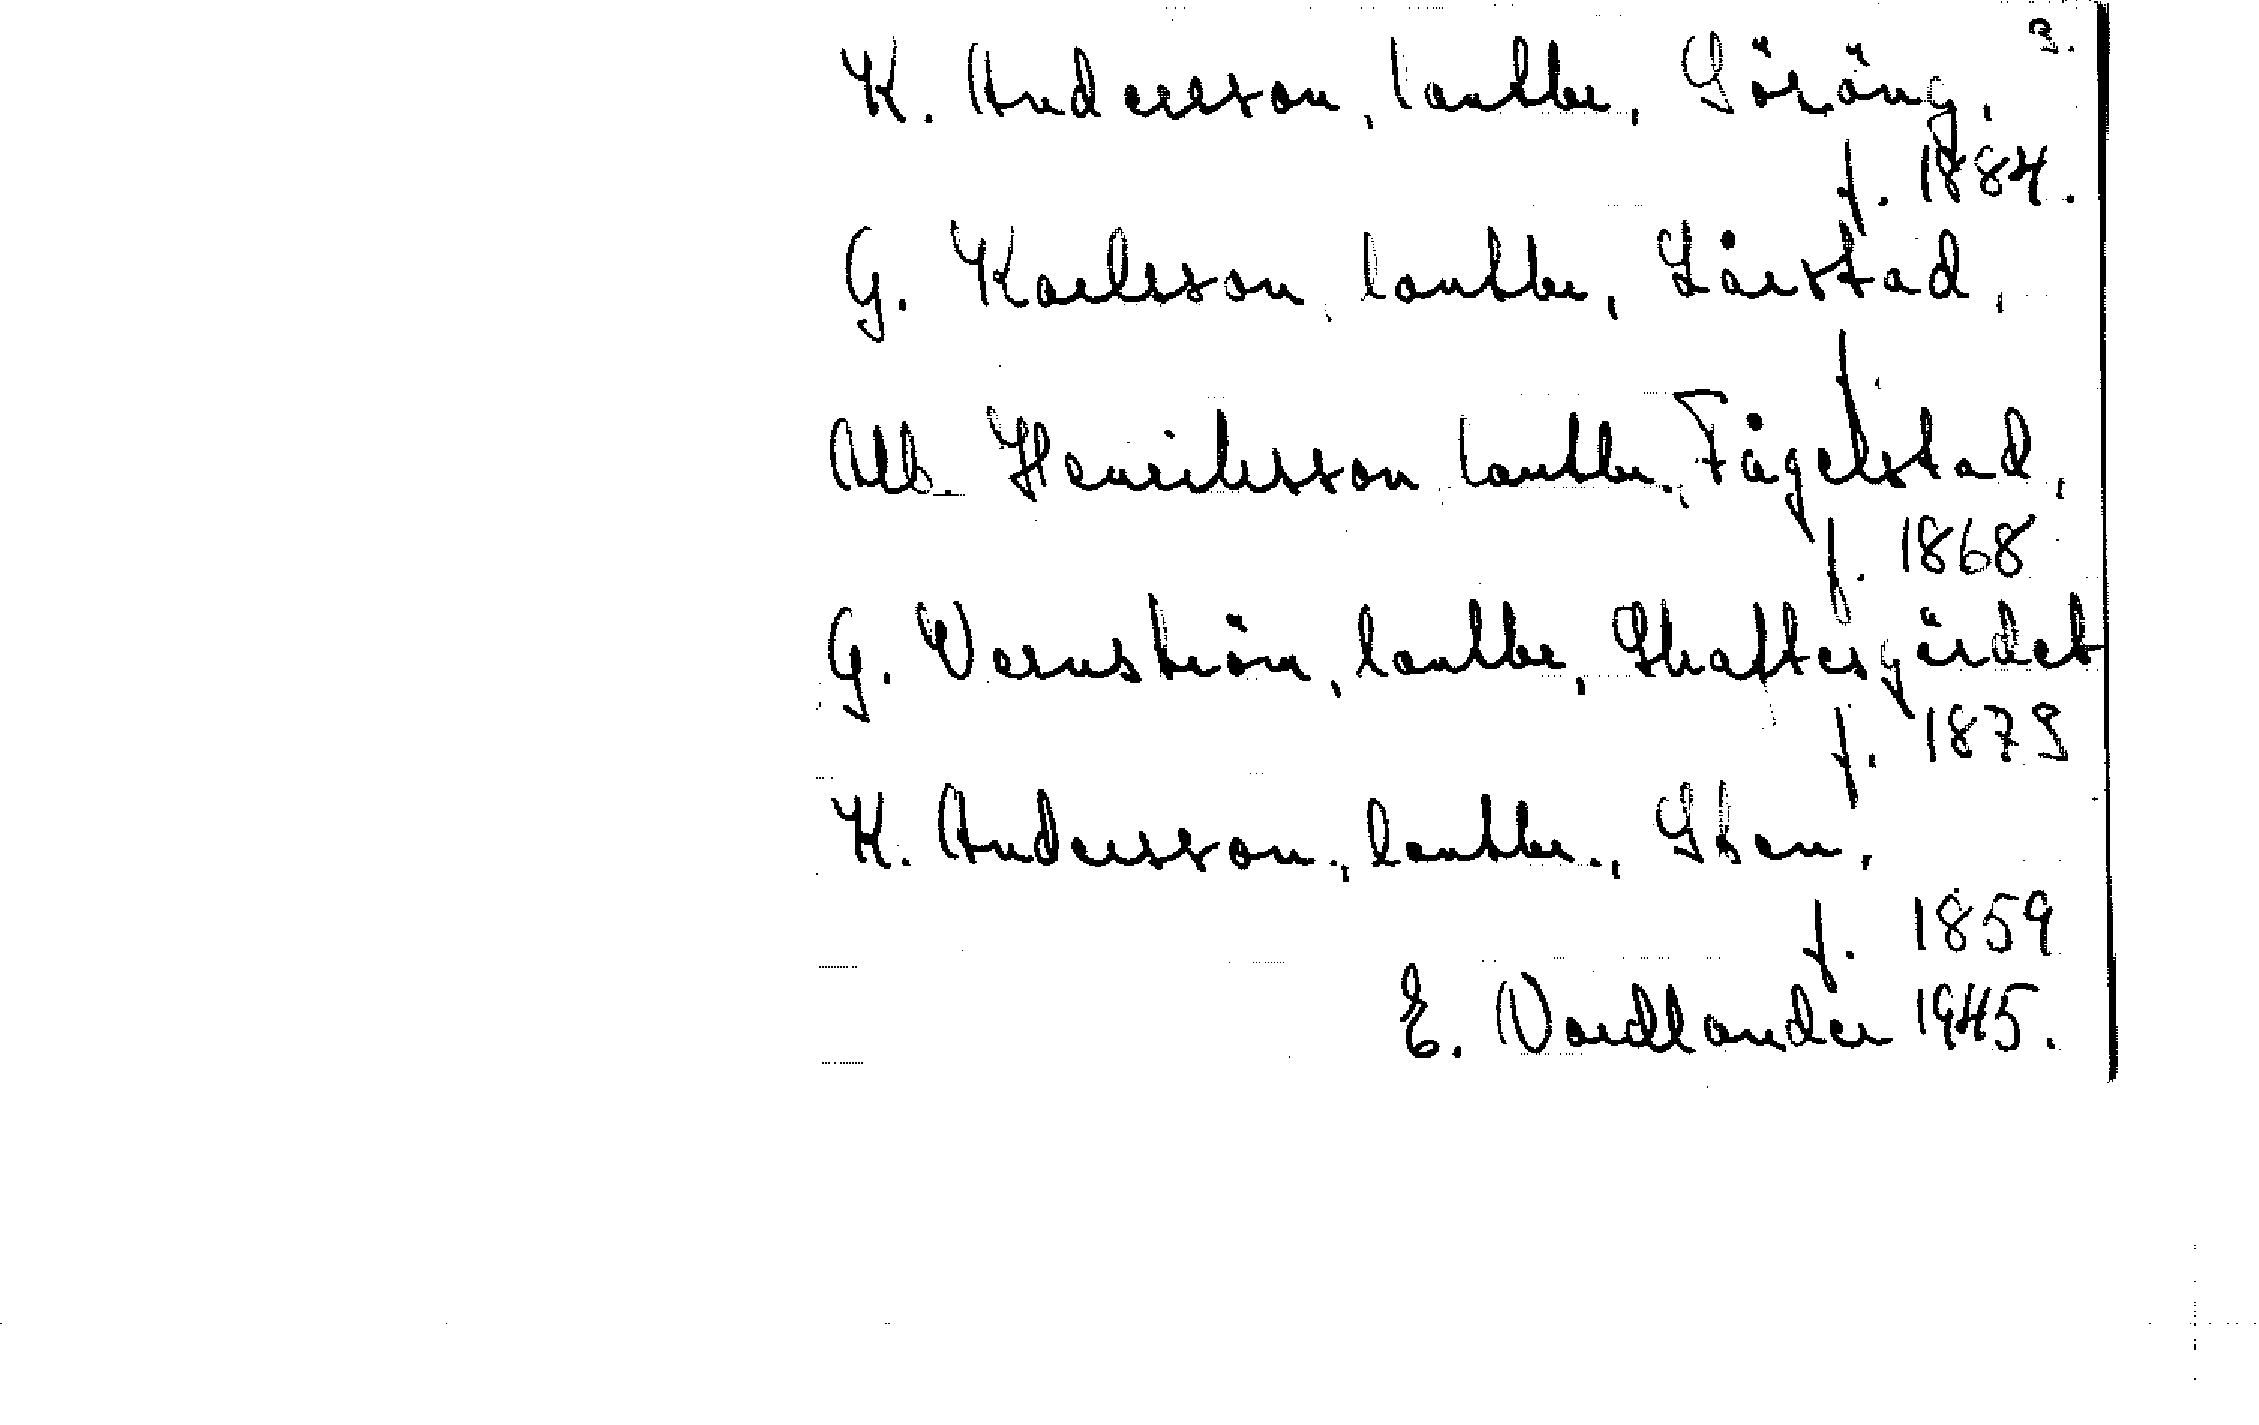 2.
K. Andersson, lantbr., Söräng,
f. 1884.
G. Karlsson, lantbr., Lårstad,
f.
Alb. Henriksson lantbr., Fågelstad,
f. 1868
G. Vernström, lantbr., Skattegärdet
f. 1879
K. Andersson, lantbr., Sten,
f. 1859
E. Nordlander 1945.